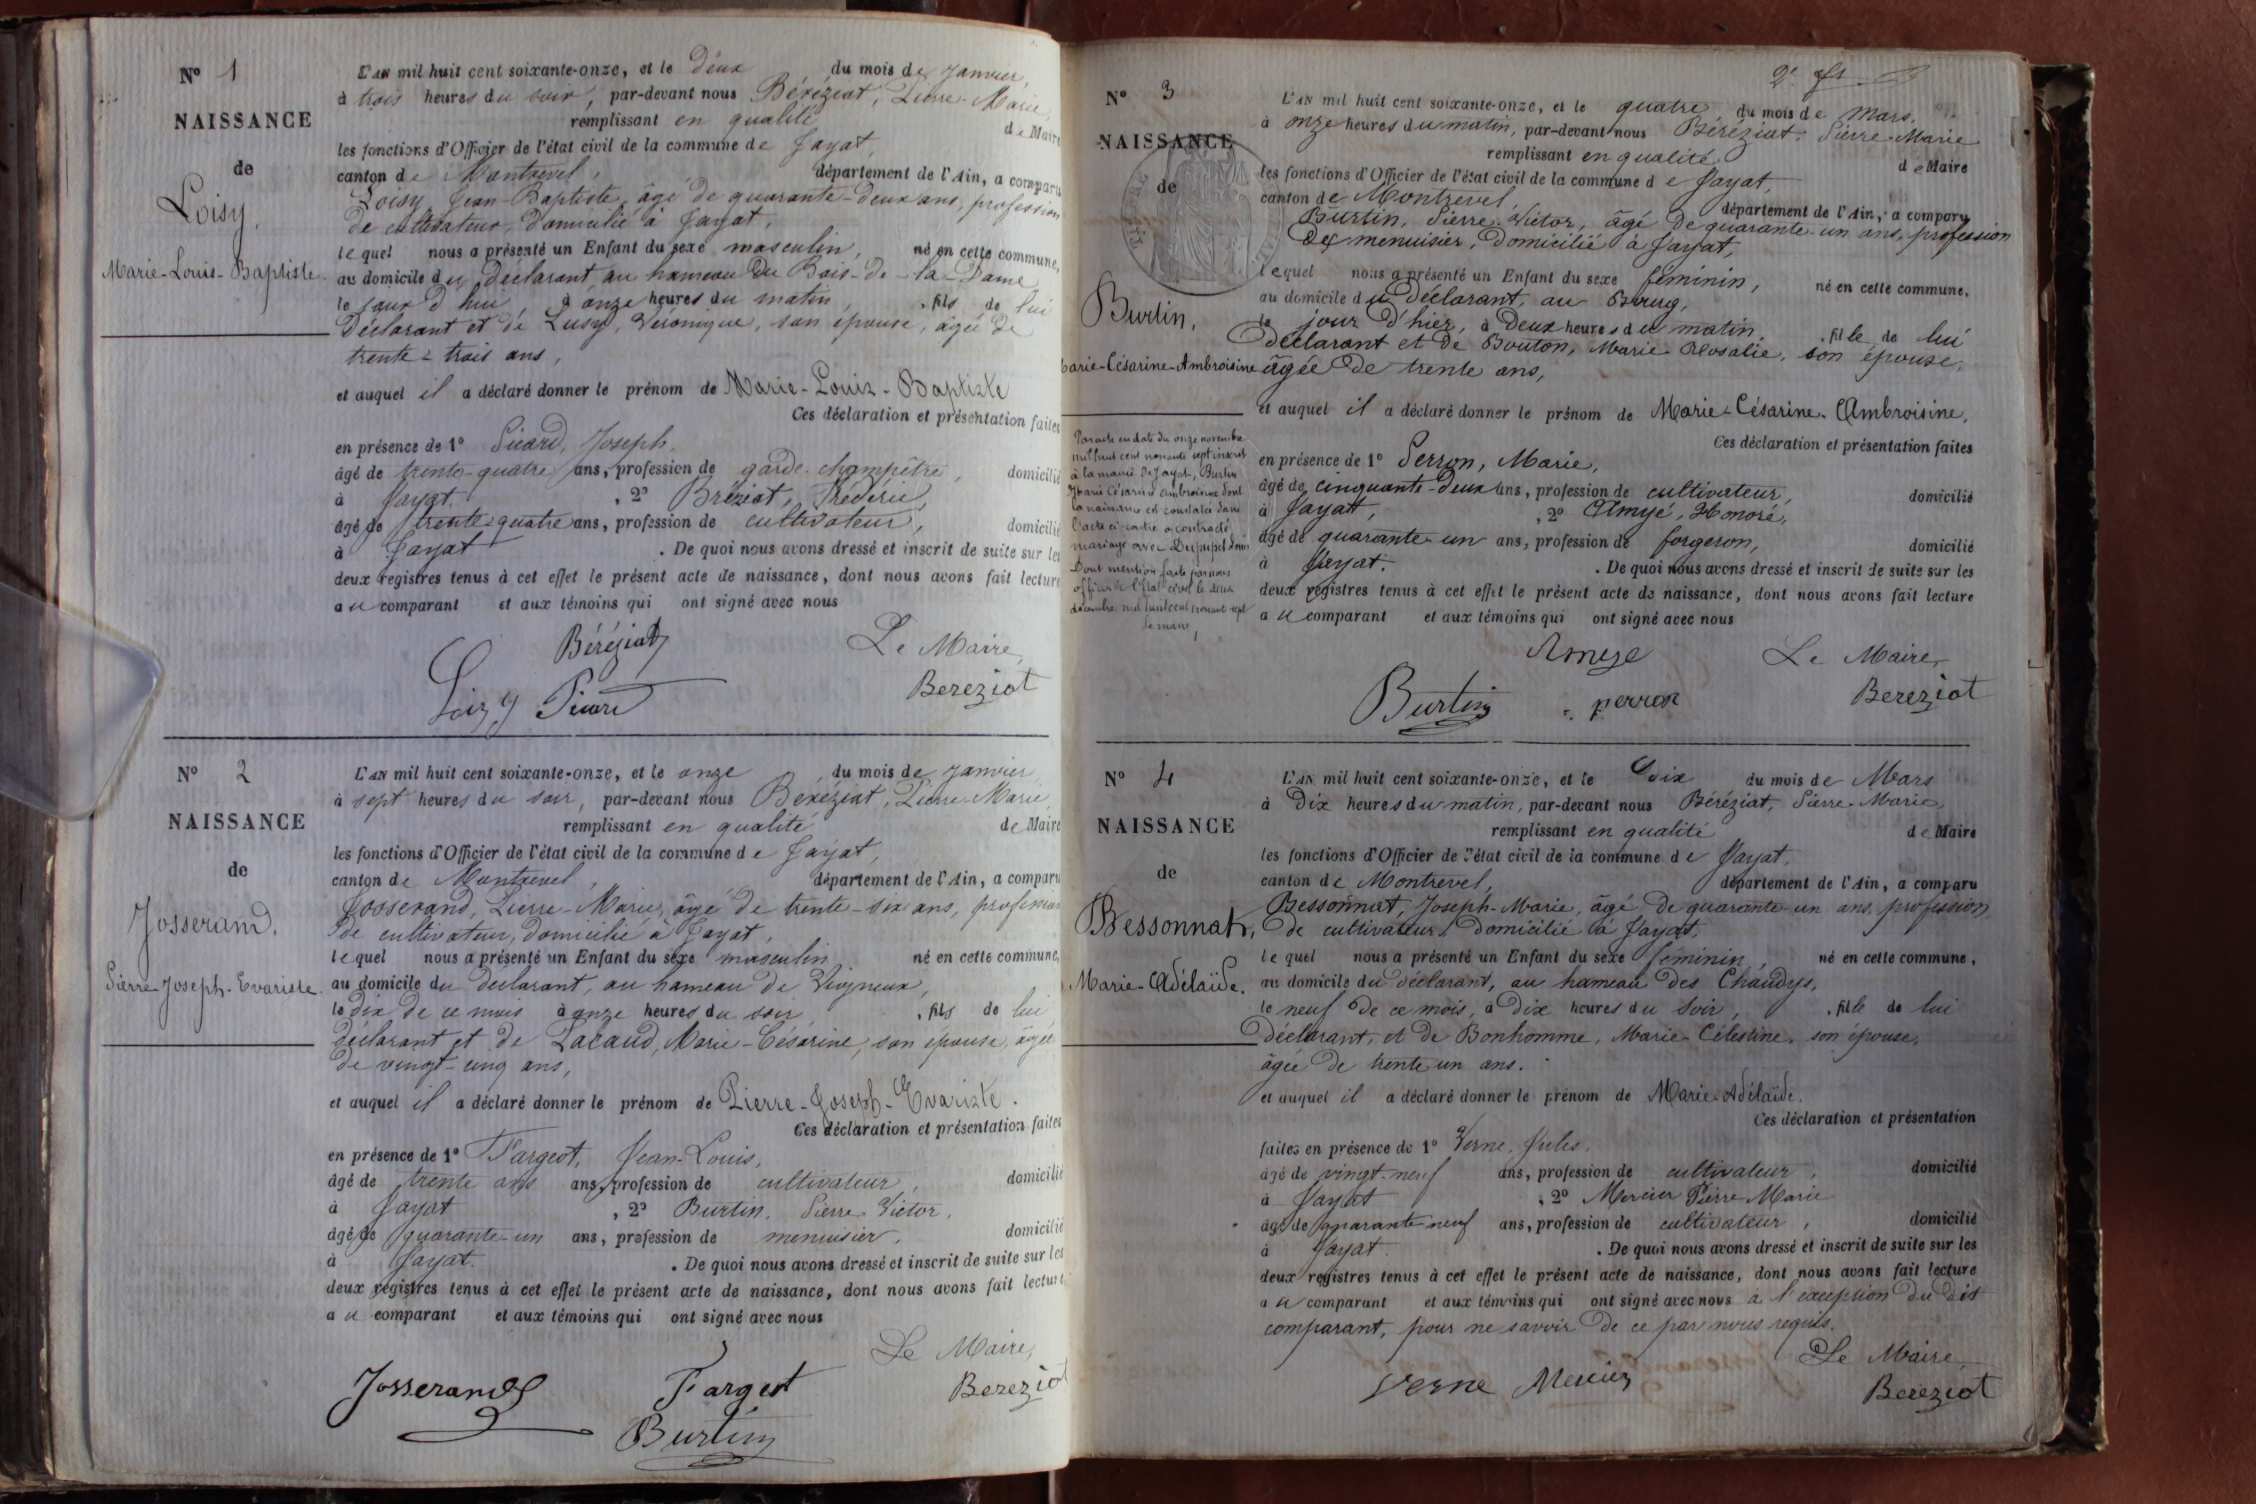 N° 1
NAISSANCE
de
Loisy,
Marie-Louis-Baptiste
L'AN mil huit cent soixante-onze, et le deux du mois de janvier,
à trois heures du soir, par-devant nous Béréziat, Pierre-Marie,
remplissant en qualité de Maire
les fonctions d'Officier de l'état civil de la commune de Jayat,
canton de Montrevel, département de l'Ain, a comparu
Loisy, Jean-Baptiste, âgé de quarante-deux ans, profession
de cultivateur, domicilié à Jayat,
lequel nous a présenté un Enfant du sexe masculin, né en cette commune,
au domicile du déclarant, au hameau du Bois-de-la-Dame,
le jour d'hui, à onze heures du matin, fils de lui
déclarant et de Lusy, Véronique, son épouse, âgée de
trente-trois ans,
et auquel il a déclaré donner le prénom de Marie-Louis-Baptiste
Ces déclaration et présentation faites
en présence de 1° Picard, Joseph,
âgé de trente-quatre ans, profession de garde-champêtre, domicilié
à Jayat, 2° Bréziat, Frédéric,
âgé de trente-quatre ans, profession de cultivateur, domicilié
à Jayat. De quoi nous avons dressé et inscrit de suite sur les
deux registres tenus à cet effet le présent acte de naissance, dont nous avons fait lecture
au comparant et aux témoins qui ont signé avec nous
Béréziat Le Maire,
Loizy Picard Bereziat
N° 2
NAISSANCE
de
Josserand.
Pierre-Joseph-Evariste
L'AN mil huit cent soixante-onze, et le onze du mois de janvier,
à sept heures du soir, par-devant nous Béréziat, Pierre-Marie
remplissant en qualité de Maire
les fonctions d'Officier de l'état civil de la commune de Jayat,
canton de Montrevel, département de l'Ain, a comparu
Josserand, Pierre-Marie, âgé de trente-six ans, profession
de cultivateur, domicilié à Jayat,
lequel nous a présenté un Enfant du sexe masculin né en cette commune,
au domicile du déclarant, au hameau de Vigneux,
le dix de ce mois à onze heures du soir, fils de lui
déclarant et de Pacaud, Marie-Césarine, son épouse, âgée
de vingt-cinq ans,
et auquel il a déclaré donner le prénom de Pierre-Joseph-Evariste.
Ces déclaration et présentation faites
en présence de 1° Fargeot, Jean-Louis,
âgé de trente ans ans, profession de cultivateur, domicilié
à Jayat, 2° Burtin, Pierre-Victor,
âgé de quarante-un ans, profession de menuisier, domicilié
à Jayat. De quoi nous avons dressé et inscrit de suite sur les
deux registres tenus à cet effet le présent acte de naissance, dont nous avons fait lecture
au comparant et aux témoins qui ont signé avec nous
Le Maire,
Josserand Fargeot Bereziat
Burtin
2e
N° 3
NAISSANCE
de
Burtin,
Marie-Césarine-Ambroisine
Par acte en date du onze novembre
mil huit cent nonante sept inscrit
à la mairie de Jayat, Burtin
Marie Césarine Ambroisine dont
la naissance est constatée dans
l'acte ci-contre a contracté
mariage avec
Dont mention faite par nous
officier de l'Etat civil le deux
décembre mil huit cent nonante sept
Le maire,
L'AN mil huit cent soixante-onze, et le quatre du mois de Mars,
à onze heures du matin, par-devant nous Béréziat, Pierre-Marie
remplissant en qualité de Maire
les fonctions d'Officier de l'état civil de la commune de Jayat,
canton de Montrevel, département de l'Ain, a comparu
Burtin, Pierre-Victor, âgé de quarante-un ans, profession
de menuisier, domicilié à Jayat,
lequel nous a présenté un Enfant du sexe féminin, né en cette commune,
au domicile du déclarant, au Bourg,
le jour d'hier, à deux heures du matin, fille de lui
déclarant et de Bouton, Marie-Rosalie, son épouse,
âgée de trente ans,
et auquel il a déclaré donner le prénom de Marie-Césarine-Ambroisine,
Ces déclaration et présentation faites
en présence de 1° Perron, Marie,
âgé de cinquante-deux ans, profession de cultivateur, domicilié
à Jayat, 2° Amyé, Honoré,
âgé de quarante-un ans, profession de forgeron, domicilié
à Jayat. De quoi nous avons dressé et inscrit de suite sur les
deux registres tenus à cet effet le présent acte de naissance, dont nous avons fait lecture
au comparant et aux témoins qui ont signé avec nous
Amye Le Maire,
Burtin perron Bereziat
N° 4
NAISSANCE
de
Bessonnat,
Marie-Adélaïde.
L'AN mil huit cent soixante-onze, et le Dix du mois de Mars
à Dix heures du matin, par-devant nous Béréziat, Pierre-Marie,
remplissant en qualité de Maire
les fonctions d'Officier de l'état civil de la commune de Jayat,
canton de Montrevel, département de l'Ain, a comparu
Bessonnat, Joseph-Marie, âgé de quarante-un ans, profession
de cultivateur, domicilié à Jayat,
lequel nous a présenté un Enfant du sexe féminin, né en cette commune,
au domicile du déclarant, au hameau des Chaudys,
le neuf de ce mois, à dix heures du soir, fille de lui
Déclarant, et de Bonhomme, Marie-Célestine, son épouse,
âgée de trente un ans.
et auquel il a déclaré donner le prénom de Marie-Adélaïde.
Ces déclaration et présentation
faites en présence de 1° Verne, Jules,
âgé de vingt-neuf ans, profession de cultivateur, domicilié
à Jayat, 2° Mercier Pierre Marie
âgé de quarante-neuf ans, profession de cultivateur, domicilié
à Jayat. De quoi nous avons dressé et inscrit de suite sur les
deux registres tenus à cet effet le présent acte de naissance, dont nous avons fait lecture
au comparant et aux témoins qui ont signé avec nous à l'exception du dit
comparant, pour ne savoir de ce par nous requis.
Le Maire,
Verne Mercier Bereziat